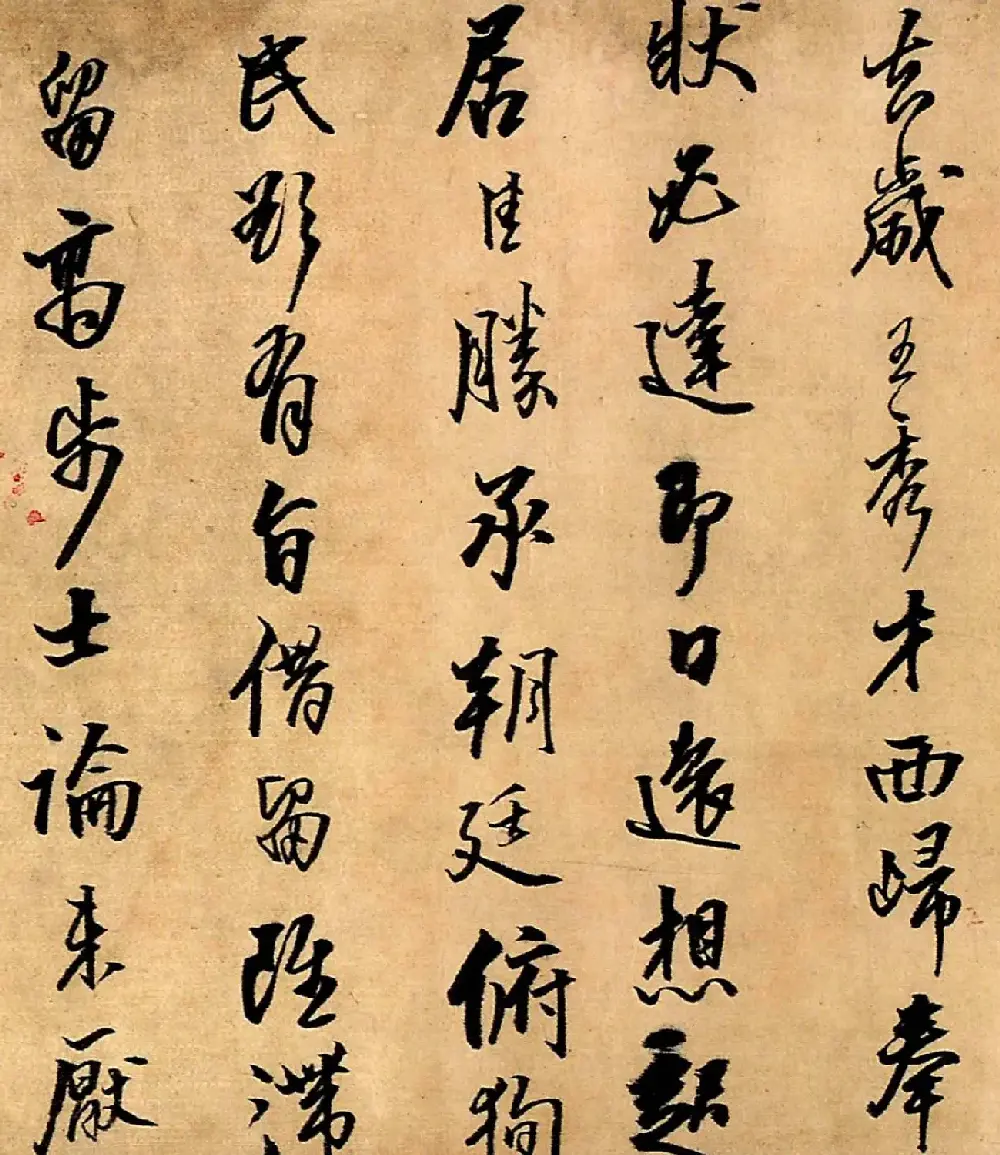 去歲王秀才西歸奉
狀必達即日遠想起
居佳勝承朝廷俯徇
民欲有旨借留雖滯
留高步士論未厭